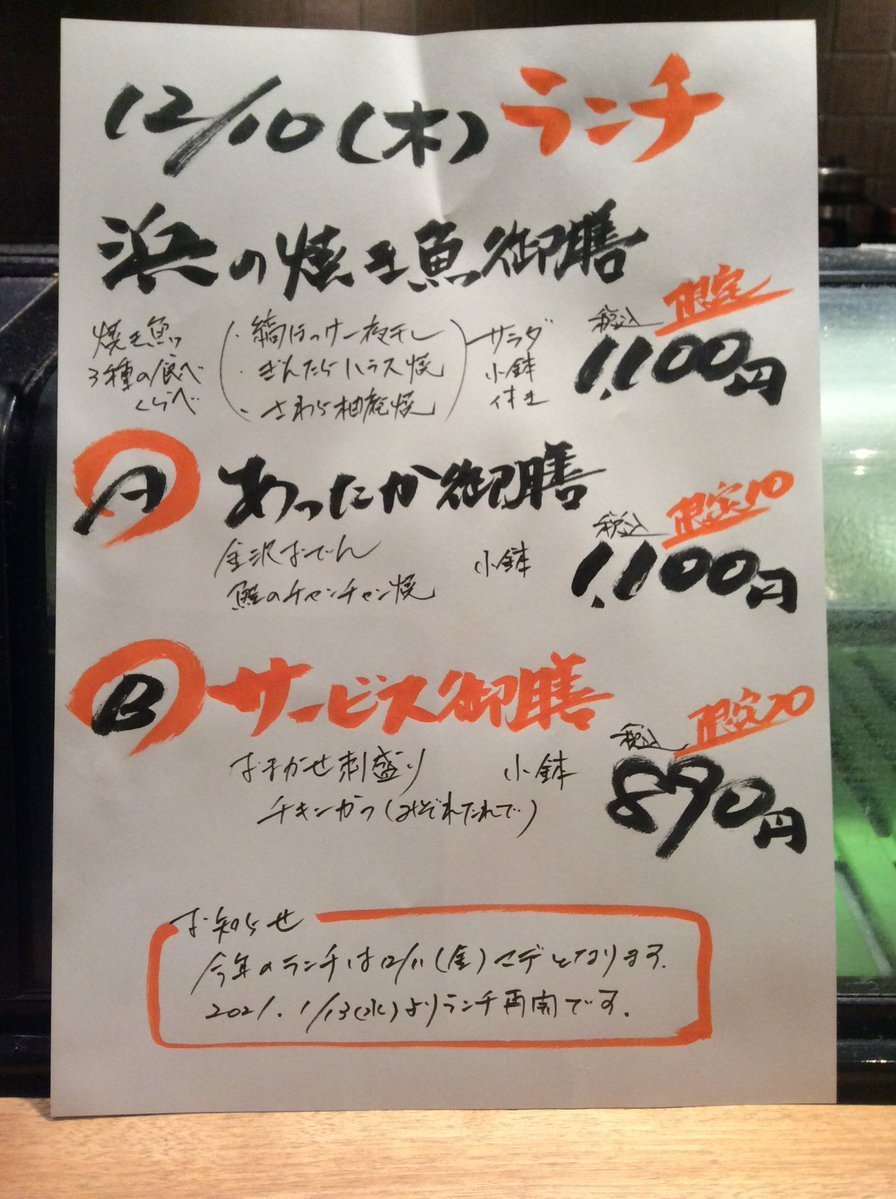 12/10(木)ランチ
浜の焼き魚御膳
焼き魚
3種の食べ
くらべ
・縞ほっけ一夜干し
・ぎんだらハラス焼
・さわら柚庵焼
サラダ
小鉢
付き
限定
税込
1,100円
A あったか御膳
金沢おでん 小鉢
鮭のチャンチャン焼
限定10
税込
1,100円
B サービス御膳
おまかせ刺盛り 小鉢
チキンかつ(みぞれたれで)
限定20
税込
890円
お知らせ
今年のランチは12/11(金)マデとなります.
2021.1/13(水)よりランチ再開です.